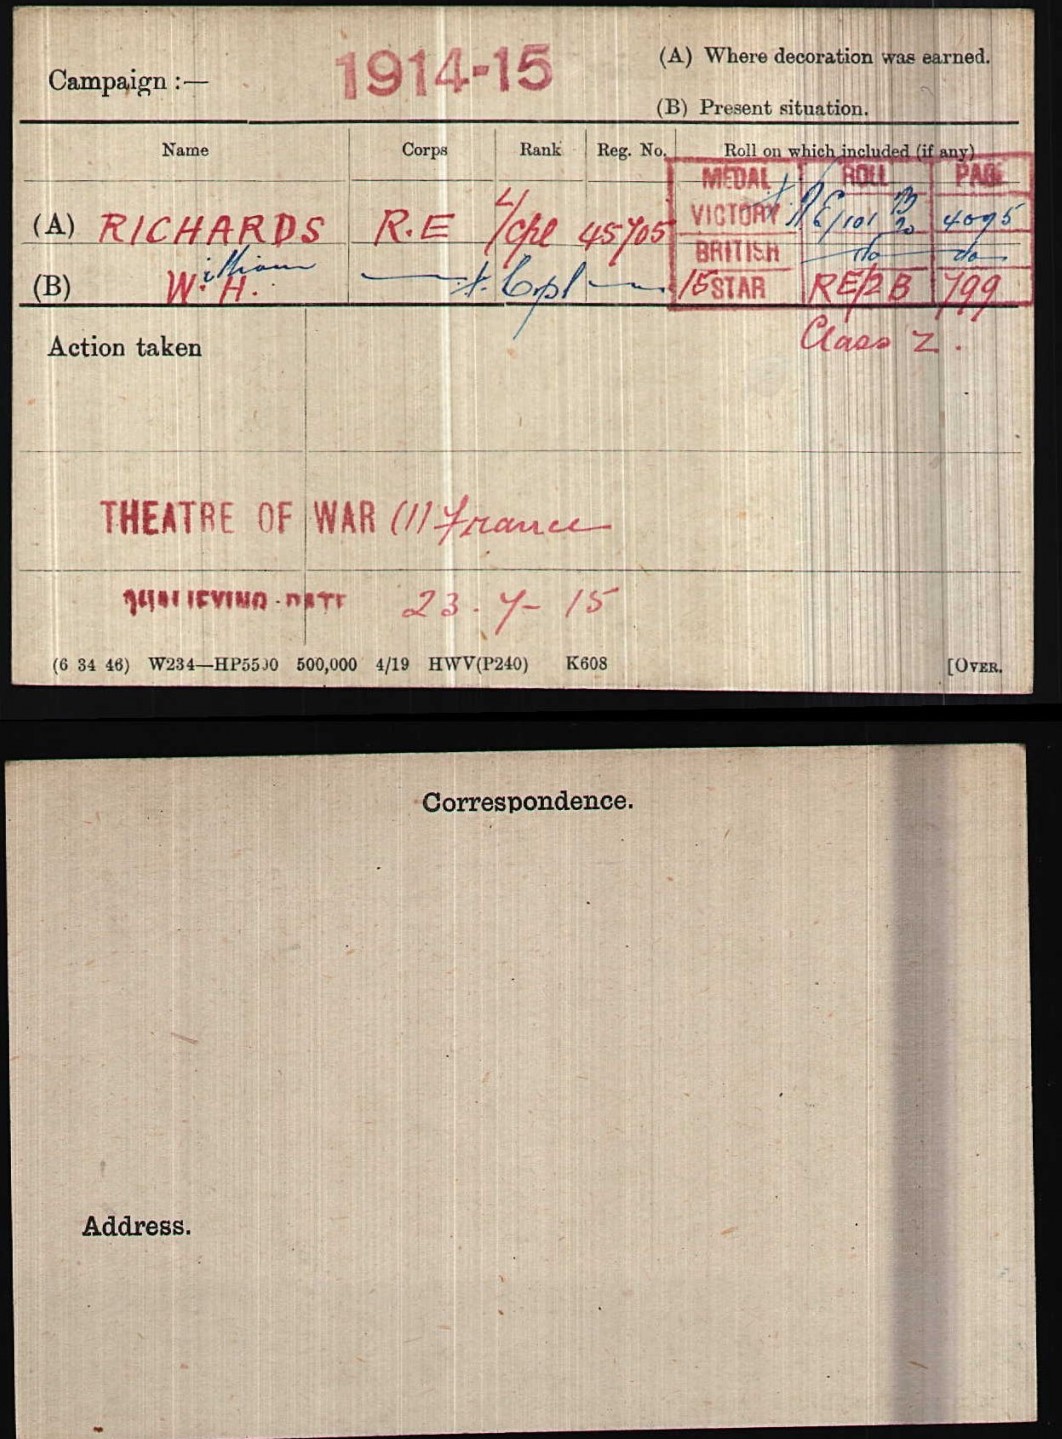 Campaign :— 1914-15 (A) Where decoration was earned.
(B) Present situation.
Name Corps Rank Reg. No. Roll on which included (if any)
MEDAL ROLL PAGE
(A) RICHARDS R.E L/Cpl 45705 VICTORY RE/101 B 20 4095
BRITISH do do
(B) W. H. illiam Cpl 15 STAR RE/2 B 799
Action taken Class Z.
THEATRE OF WAR (1) France
QUALIFYING DATE 23-7-15
(6 34 46) W234—HP5500 500,000 4/19 HWV(P240) K608 [OVER.
Correspondence.
Address.